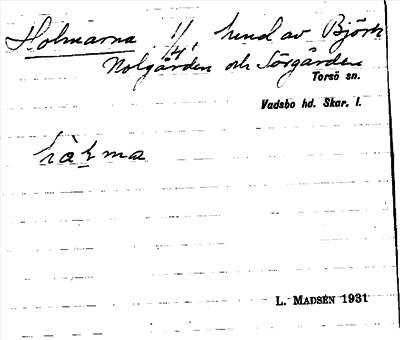 Holmarna 1/4, hmd av Björk
Nolgården och Sörgården
Torsö sn.
Vadsbo hd. Skar. l.
L. MADSÉN 1931